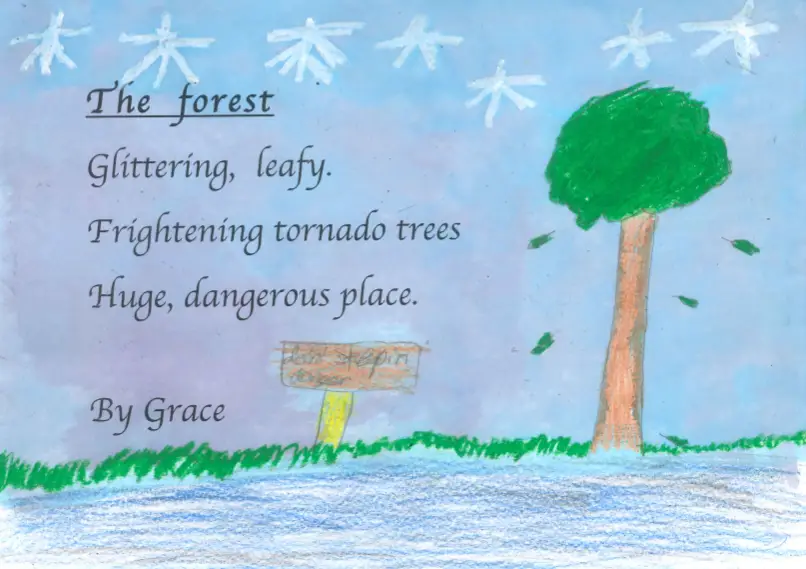 The forest
Glittering, leafy.
Frightening tornado trees
Huge, dangerous place.
By Grace